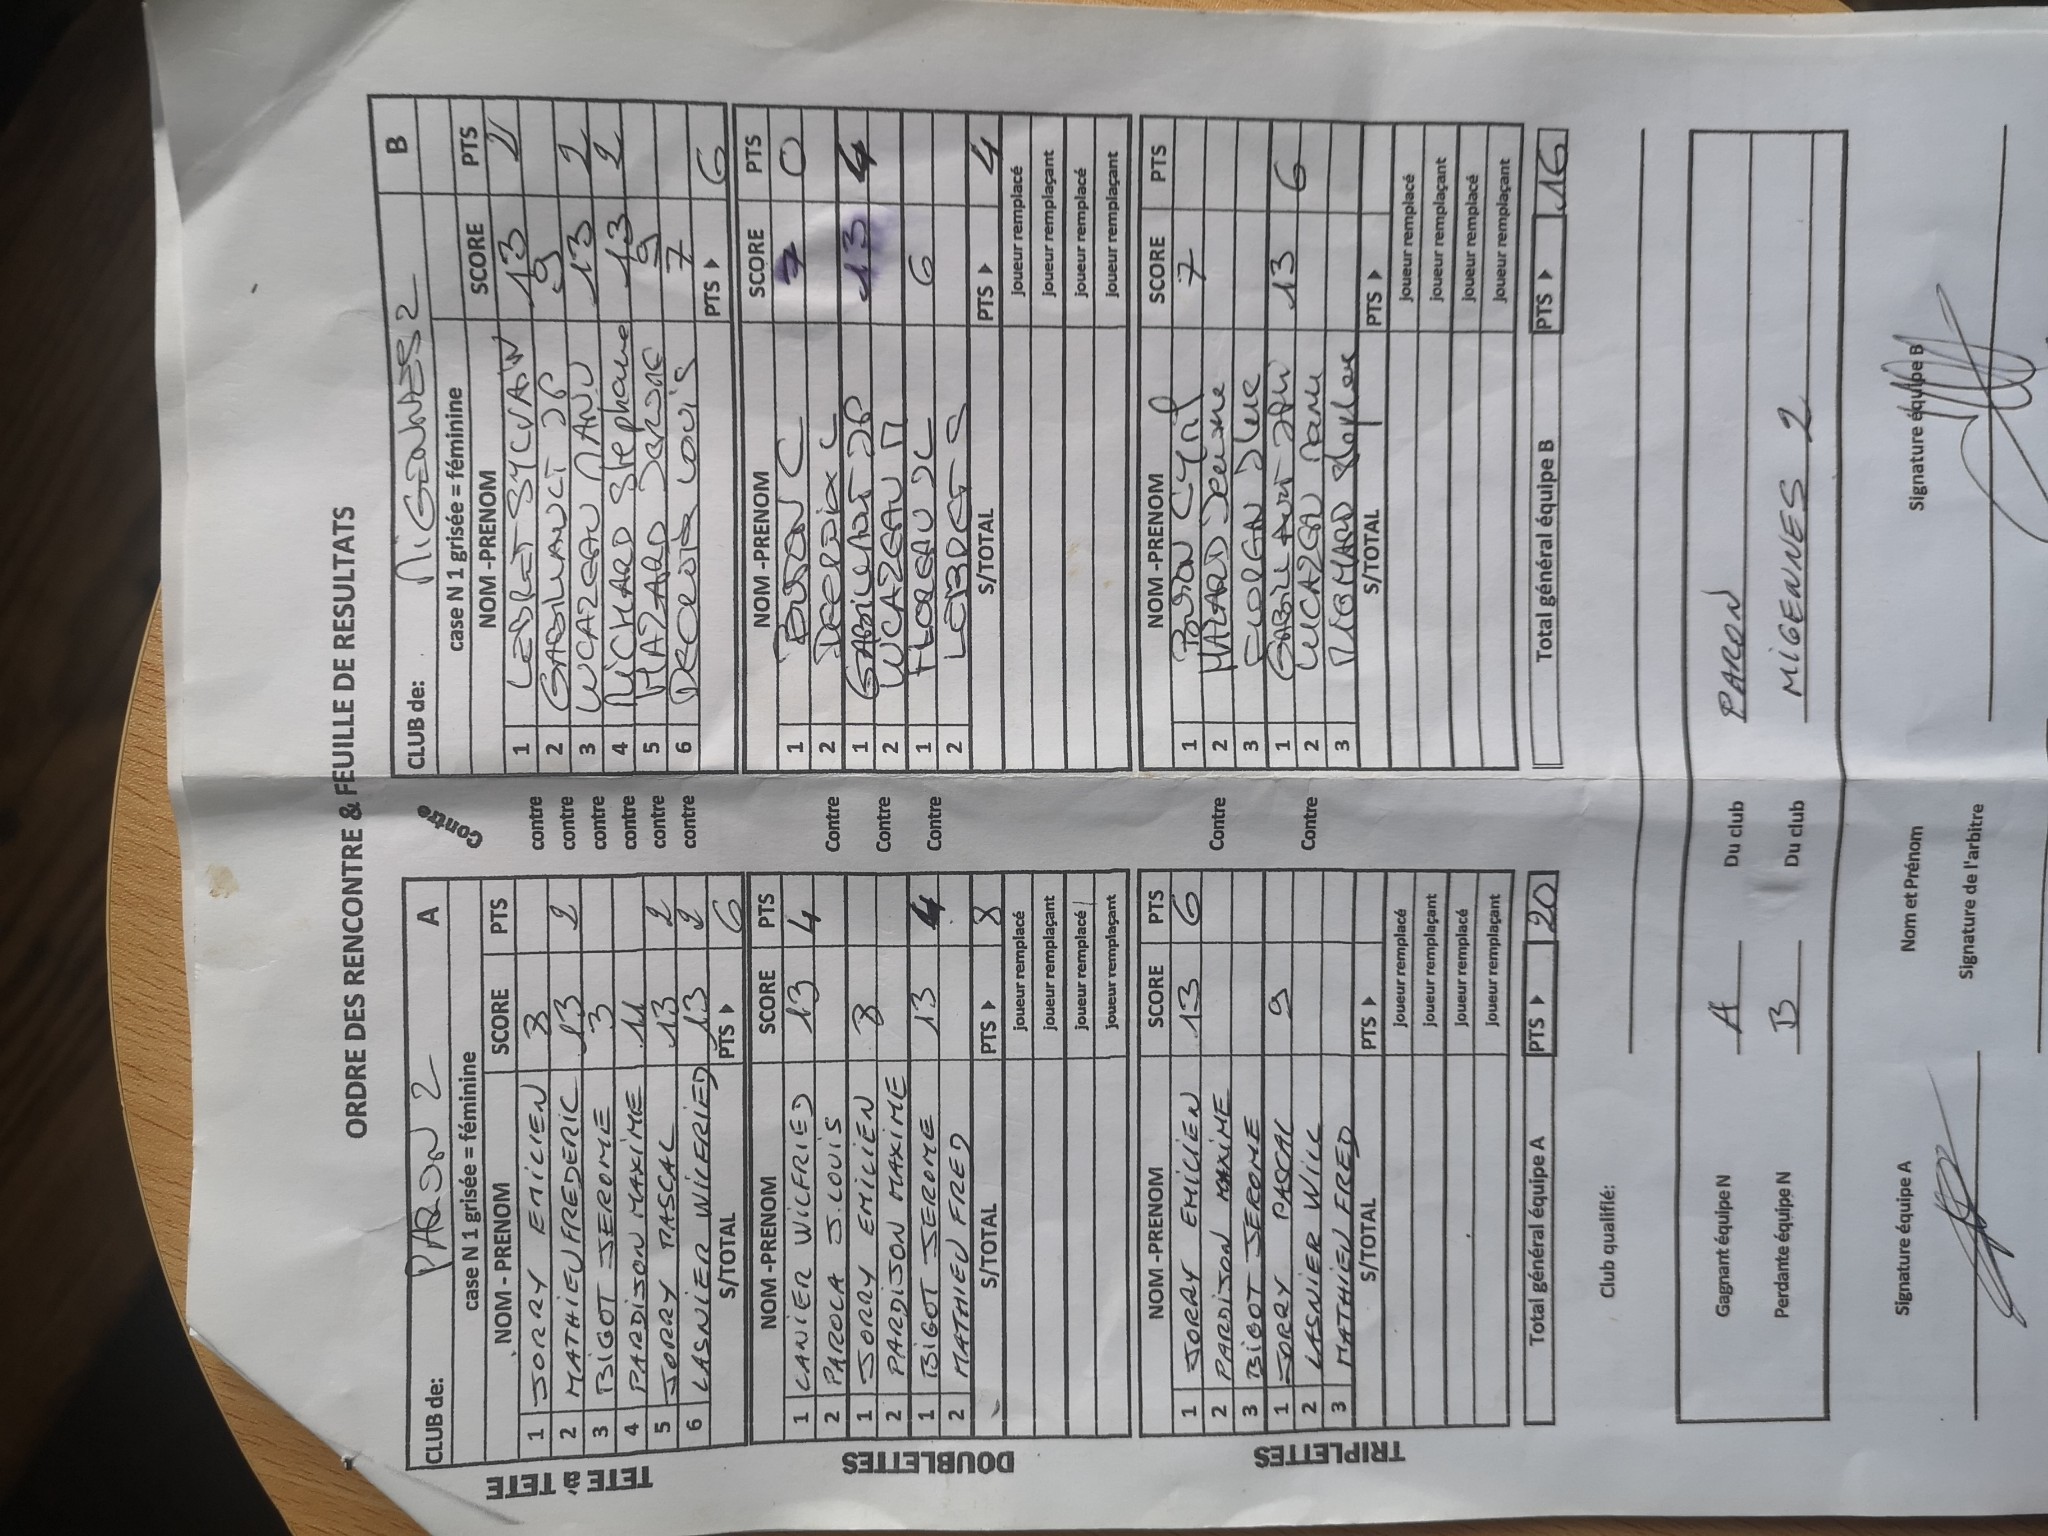 ORDRE DES RENCONTRE & FEUILLE DE RESULTATS
CLUB de: PARON 2 A
case N 1 grisée = féminine
NOM - PRENOM SCORE PTS
1 JORRY EMILIEN 8
2 MATHIEU FREDERIC 13 2
3 BIGOT JEROME 3
4 PARDISON MAXIME 11
5 JORRY PASCAL 13 2
6 LASNIER WILFRIED 13 2
S/TOTAL PTS ▶ 6
TETE à TETE
Contre
contre
contre
contre
contre
contre
contre
CLUB de: MIGENNES 2 B
case N 1 grisée = féminine
NOM -PRENOM SCORE PTS
1 LEBRET SYLVAIN 13 2
2 JP 9
3 LUCAZEAU MANU 13 2
4 MICHARD Stephane 13 2
5 MAZARD 9
6 Louis 7
PTS ▶ 6
NOM -PRENOM SCORE PTS
1 CANIER WILFRIED 13 4
2 PAROLA J.LOUIS
1 JORRY EMILIEN 8
2 PARDISON MAXIME
1 BIGOT JEROME 13 4
2 MATHIEU FRED
S/TOTAL PTS ▶ 8
joueur remplacé
joueur remplaçant
joueur remplacé
joueur remplaçant
DOUBLETTES
Contre
Contre
Contre
NOM -PRENOM SCORE PTS
1 C 7 0
2 C
1 JP 13 4
2 LUCAZEAU M
1 JC 6
2 LEBRET S
S/TOTAL PTS ▶ 4
joueur remplacé
joueur remplaçant
joueur remplacé
joueur remplaçant
NOM -PRENOM SCORE PTS
1 JORRY EMILIEN 13 6
2 PARDISON MAXIME
3 BIGOT JEROME
1 JORRY PASCAL 9
2 LASNIER WILL
3 MATHIEU FRED
S/TOTAL PTS ▶
joueur remplacé
joueur remplaçant
joueur remplacé
joueur remplaçant
TRIPLETTES
Contre
Contre
NOM -PRENOM SCORE PTS
1 Cyril 7
2 MAZARD
3
1 13 6
2 LUCAZEAU Manu
3
S/TOTAL PTS ▶
joueur remplacé
joueur remplaçant
joueur remplacé
joueur remplaçant
Total général équipe A PTS ▶ 20
Total général équipe B PTS ▶ 16
Club qualifié:
Gagnant équipe N A Du club PARON
Perdante équipe N B Du club MIGENNES 2
Signature équipe A
Nom et Prénom
Signature de l'arbitre
Signature équipe B